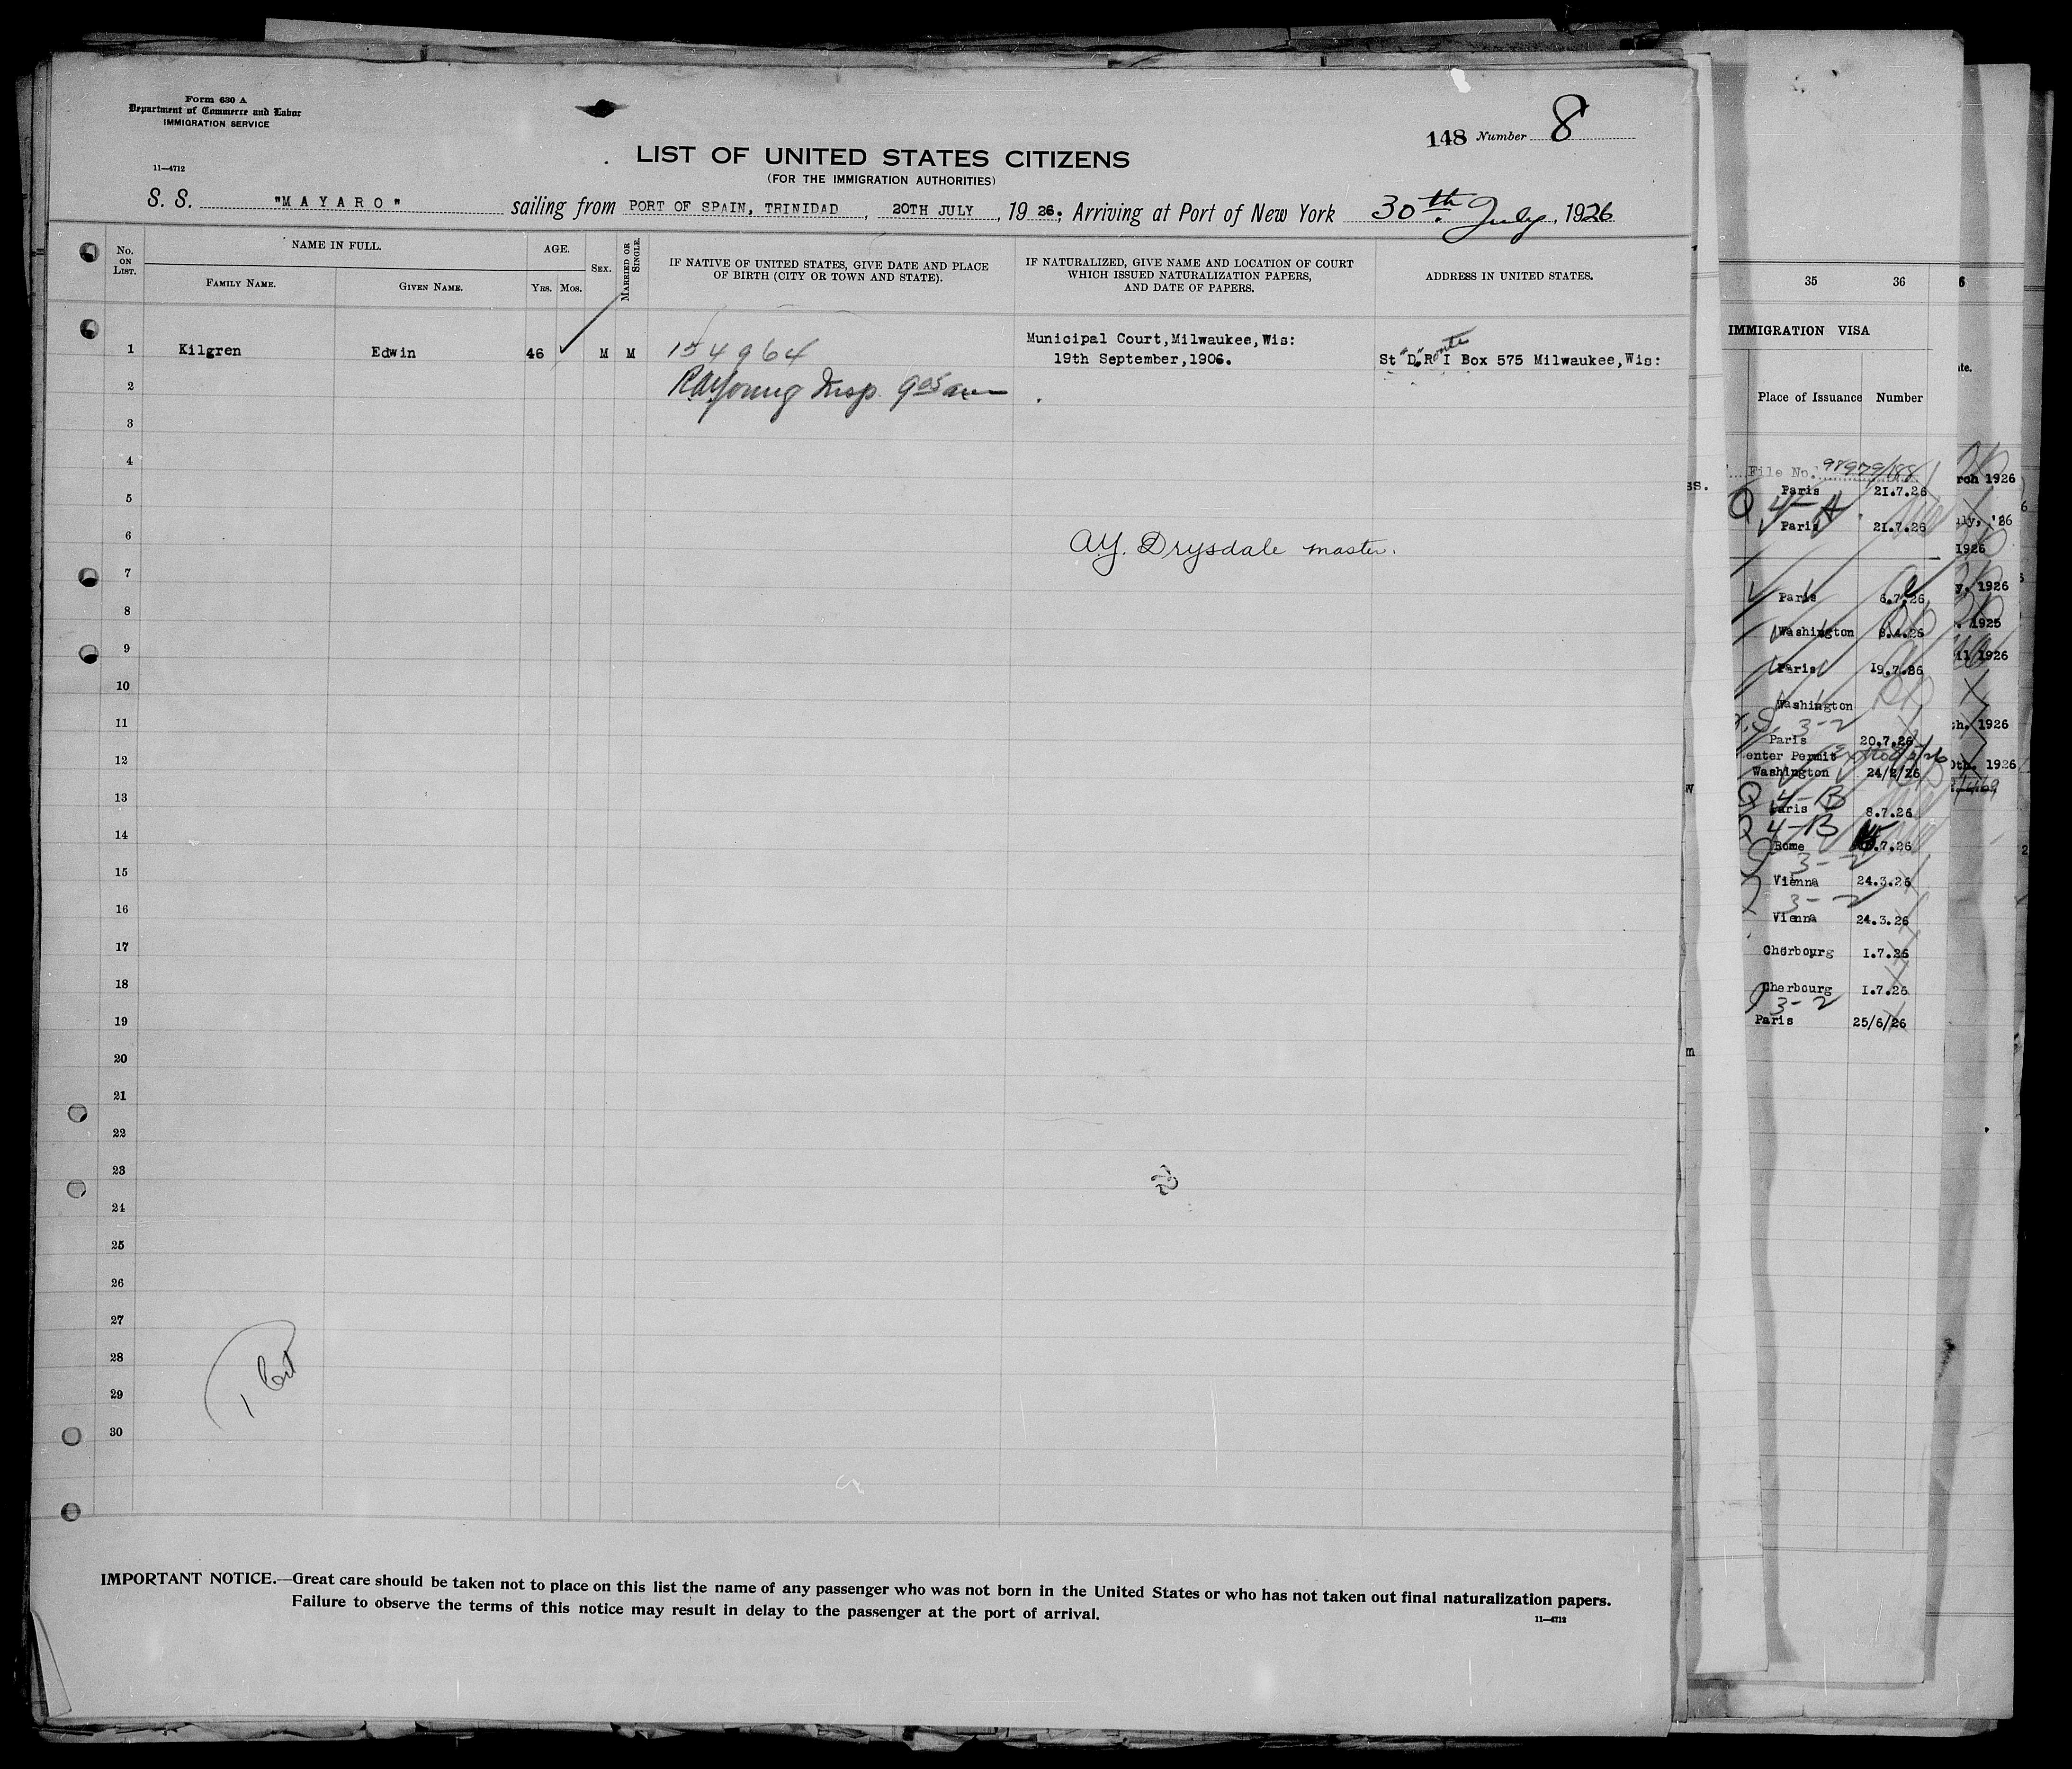 Form 630 A
Department of Commerce and Labor
IMMIGRATION SERVICE
11—4712
148 Number 8
LIST OF UNITED STATES CITIZENS
(FOR THE IMMIGRATION AUTHORITIES)
S. S. "MAYARO" sailing from PORT OF SPAIN, TRINIDAD, 20TH JULY, 1926; Arriving at Port of New York 30th July, 1926
No. ON LIST.
NAME IN FULL.
FAMILY NAME.
GIVEN NAME.
AGE.
YRS. MOS.
SEX.
MARRIED OR SINGLE.
IF NATIVE OF UNITED STATES, GIVE DATE AND PLACE
OF BIRTH (CITY OR TOWN AND STATE).
IF NATURALIZED, GIVE NAME AND LOCATION OF COURT
WHICH ISSUED NATURALIZATION PAPERS,
AND DATE OF PAPERS.
ADDRESS IN UNITED STATES.
1 Kilgren Edwin 46 M M 154964
Municipal Court, Milwaukee, Wis:
19th September, 1906.
St "D." R I Box 575 Milwaukee, Wis:
Route
2 Young Insp. 9 05 am
3
4
5
6 A.Y. Drysdale master.
7
8
9
10
11
12
13
14
15
16
17
18
19
20
21
22
23
24
25
26
27
28
29
30
IMPORTANT NOTICE.—Great care should be taken not to place on this list the name of any passenger who was not born in the United States or who has not taken out final naturalization papers.
Failure to observe the terms of this notice may result in delay to the passenger at the port of arrival.
11—4712
35 36
IMMIGRATION VISA
Place of Issuance Number
File No. 98979/188
Paris 21.7.26
Q 4-A
Paris 21.7.26
Paris 6.7.26
Washington 8.4.26
Paris 19.7.26
Washington
3-2
Paris 20.7.26
enter Permit
Washington 24/2/26
Q 4-B
Paris 8.7.26
Q 4-B
Rome .7.26
3-2
Vienna 24.3.26
3-2
Vienna 24.3.26
Cherbourg 1.7.26
Cherbourg 1.7.26
3-2
Paris 25/6/26
rch 1926
uly, '26
1926
y, 1926
. 1925
il 1926
th. 1926
0th. 1926